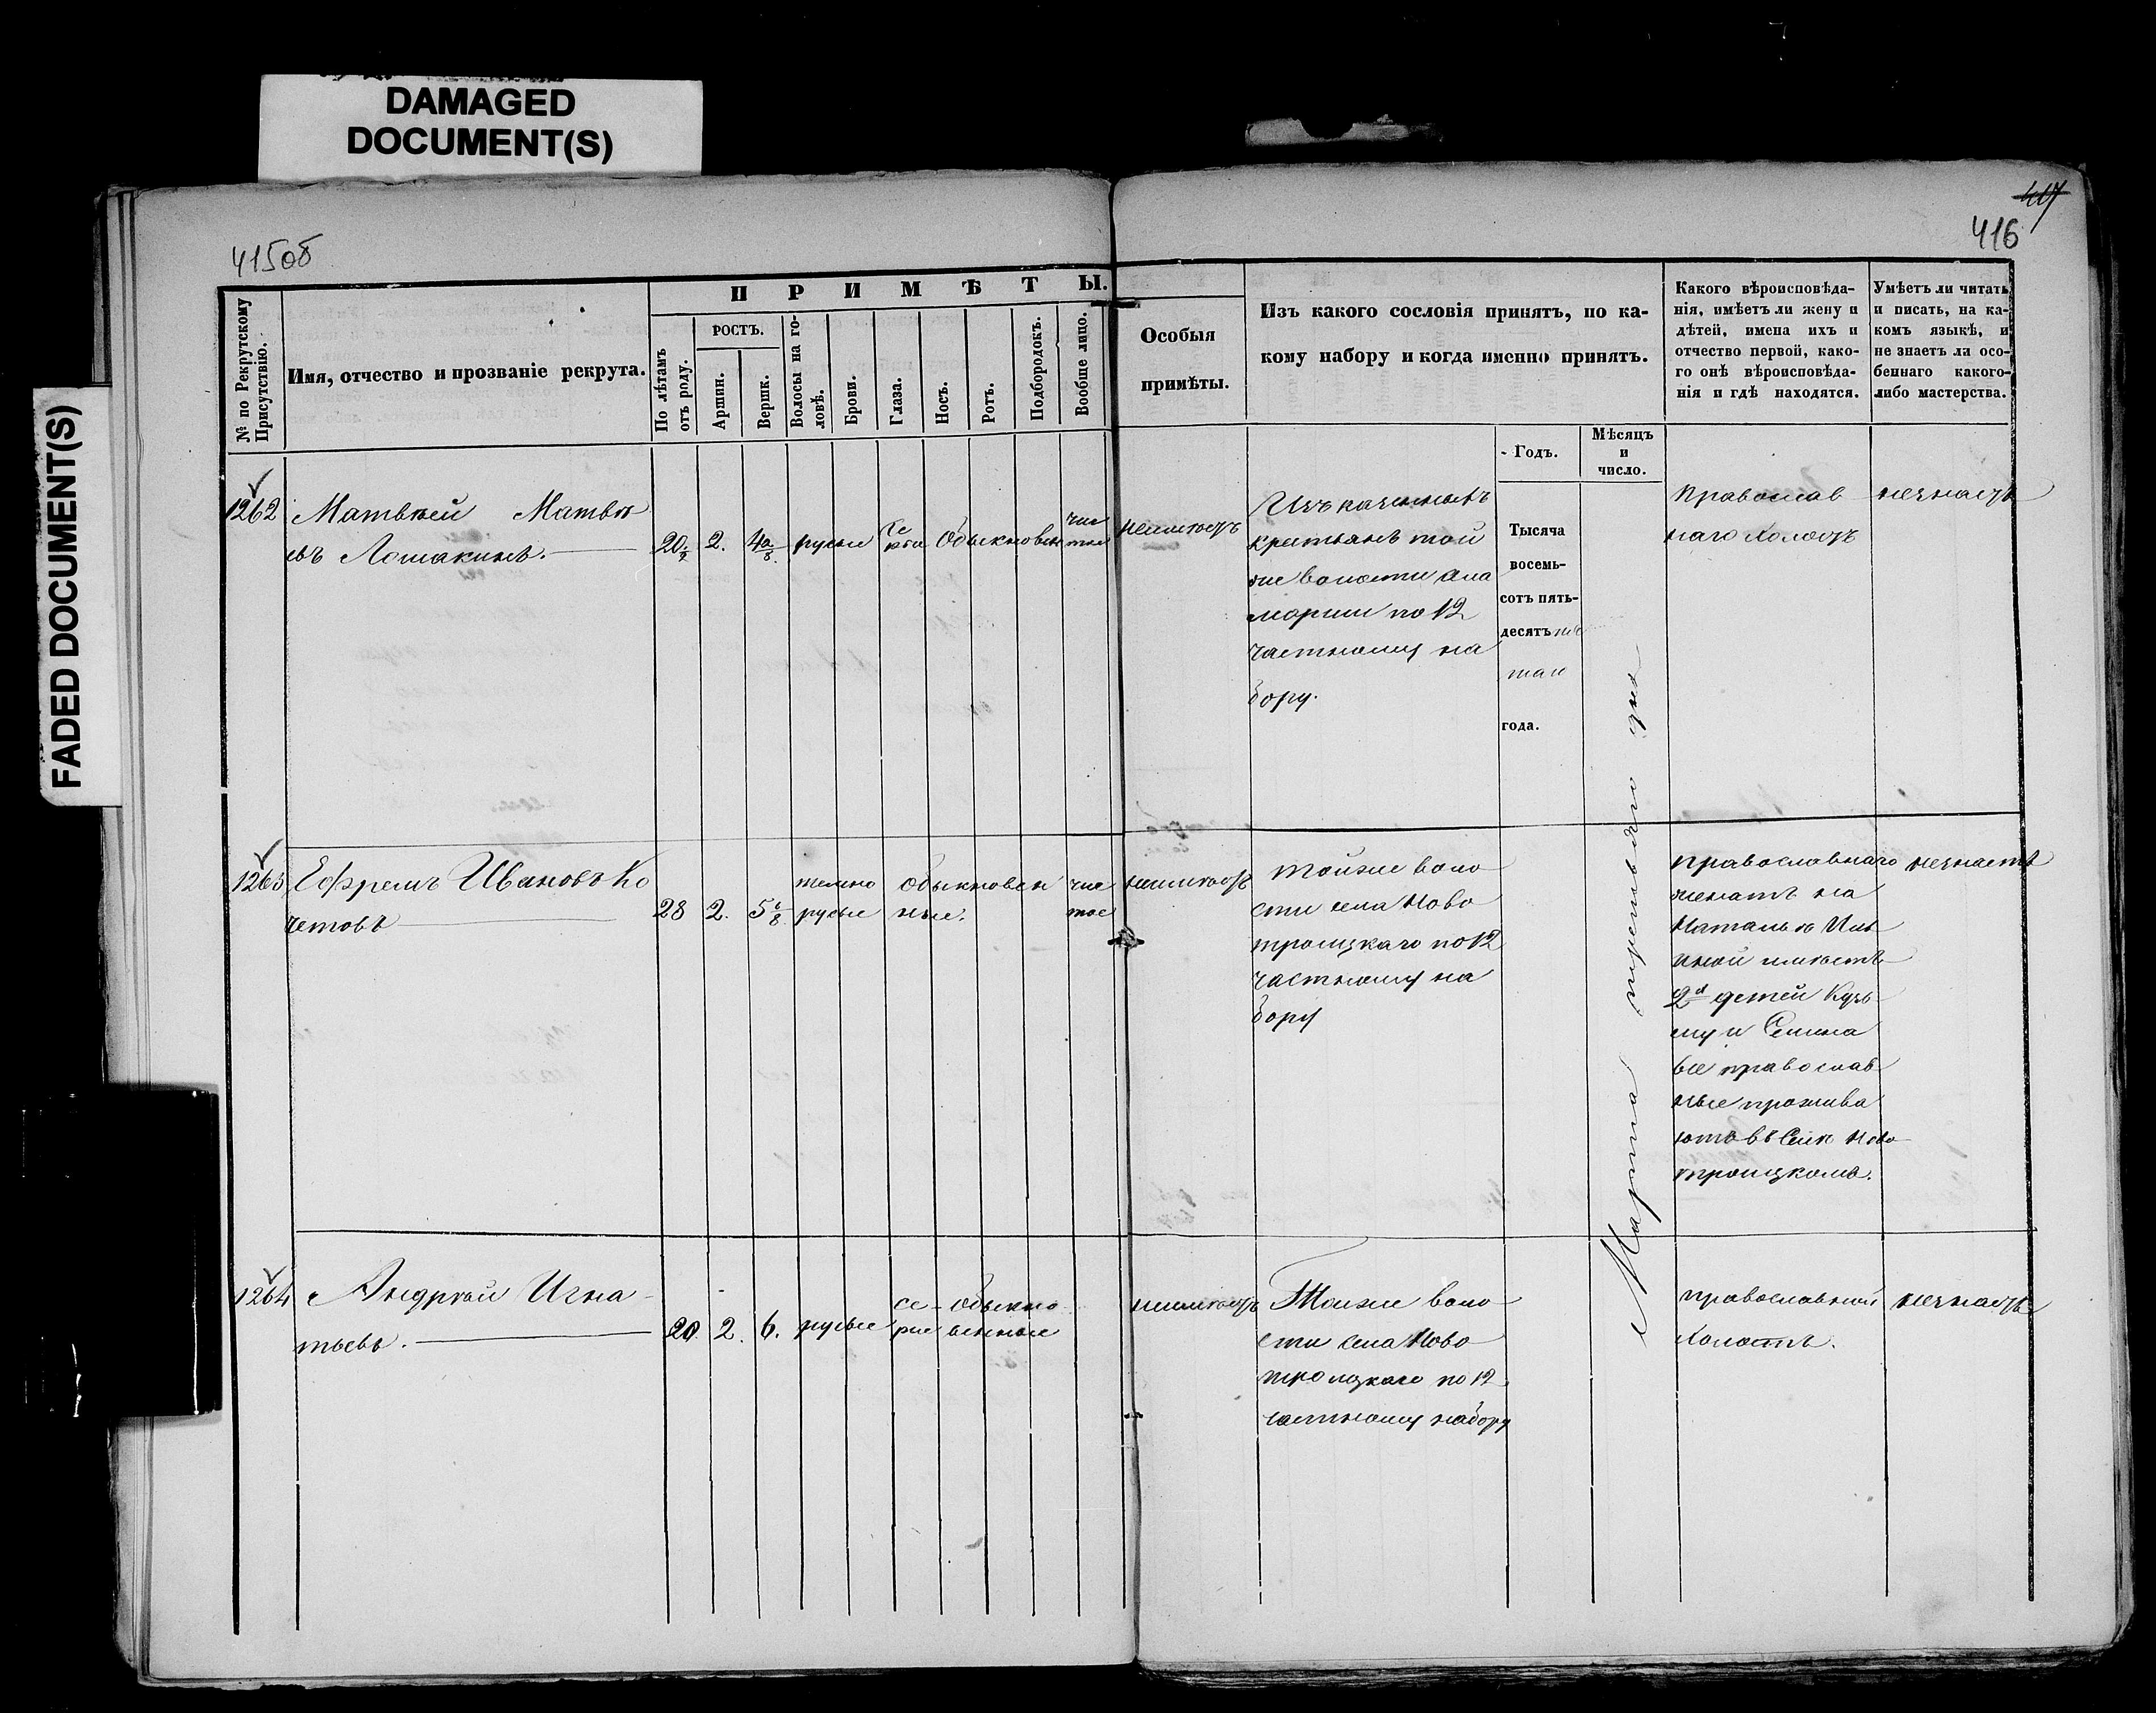 DAMAGED
DOCUMENT(S)
FADED DOCUMENT(S)
415об
417
416
№ по Рекрутскому
Присутствію.
Имя, отчество и прозваніе рекрута.
ПРИМѢТЫ.
По лѣтамъ
отъ роду.
РОСТЪ.
Аршин.
Вершк.
Волосы на го-
ловѣ.
Брови.
Глаза.
Носъ.
Ротъ.
Подбородокъ.
Вообще лицо.
Особыя
примѣты.
Изъ какого сословія принятъ, по ка-
кому набору и когда именно принятъ.
- Годъ.
Мѣсяцъ
и
число.
Какого вѣроисповѣда-
нія, имѣетъ ли жену и
дѣтей, имена ихъ и
отчество первой, како-
го онѣ вѣроисповѣда-
нія и гдѣ находятся.
Умѣетъ ли читать
и писать, на ка-
комъ языкѣ, и
не знаетъ ли осо-
беннаго какого-
либо мастерства.
1262
Матвѣй Матвѣ
евъ Лошакинъ.
2. русые Се рые Обыкновен чис тое
неимѣетъ
Изъ казенныхъ
крестьянъ той
же волости села
по 12
частному на
бору.
Тысяча
восемь-
сотъ пять-
десятъ пя
таго
года.
Марта третьяго дня
Православ
наго Холостъ
незнаетъ
1263
Ефремъ Ивановъ Ко
четовъ
28 2. 5 6/8 темно русые Обыкновен ные. чис тое
неимѣетъ
тойже воло
сти села Ново
троицкаго по 12
частному на
бору
православнаго
женатъ на
Натальѣ Иль
иной имѣетъ
2х детей Кузь
му и Семена
все православ
ные прожива
ютъ въ Селѣ Ново
троицкомъ.
незнаетъ
1264
Андрей Игна
тьевъ.
20 2. 6. русые се рые Обыкно венные
неимѣетъ
Тойже воло
сти села Ново
троицкаго по 12
частному набору
православной
Холостъ.
незнаетъ